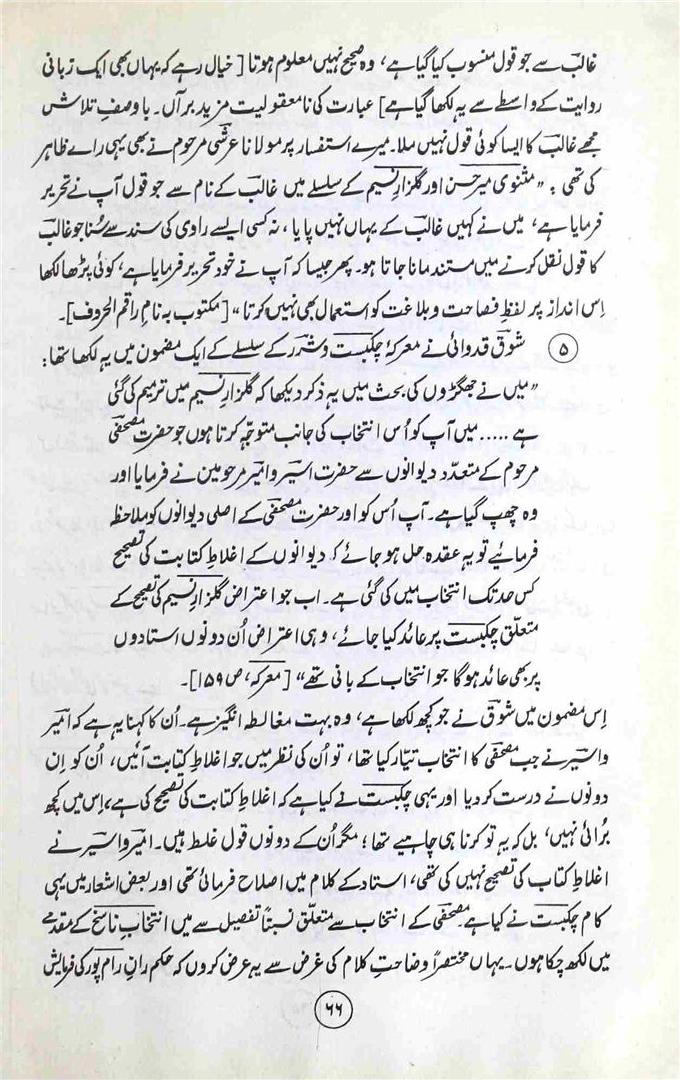 غالبؔ سے جو قول منسوب کیا گیا ہے، وہ صحیح نہیں معلوم ہوتا [خیال رہے کہ یہاں بھی ایک زبانی
روایت کے واسطے سے یہ لکھا گیا ہے] عبارت کی نامعقولیت مزید برآں۔ باوصفِ تلاش
مجھے غالبؔ کا ایسا کوئی قول نہیں ملا۔ میرے استفسار پر مولانا عرشیؔ مرحوم نے بھی یہی راے ظاہر
کی تھی: "مثنوی میر حسن اور گلزارِ نسیم کے سلسلے میں غالبؔ کے نام سے جو قول آپ نے تحریر
فرمایا ہے، میں نے کہیں غالبؔ کے یہاں نہیں پایا، نہ کسی ایسے راوی کی سند سے سُنا جو غالبؔ
کا قول نقل کرنے میں مستند مانا جاتا ہو۔ پھر جیسا کہ آپ نے خود تحریر فرمایا ہے، کوئی پڑھا لکھا
اِس انداز پر لفظِ فصاحت و بلاغت کو استعمال بھی نہیں کرتا" [مکتوب بہ نامِ راقم الحروف]۔
۵ شوقؔ قدوائی نے معرکۂ چکبست و شرر کے سلسلے کے ایک مضمون میں یہ لکھا تھا:
"میں نے جھگڑوں کی بحث میں یہ ذکر دیکھا کہ گلزارِ نسیم میں ترمیم کی گئی
ہے ..... میں آپ کو اُس انتخاب کی جانب متوجّہ کرتا ہوں جو حضرت مصحفیؔ
مرحوم کے متعدّد دیوانوں سے حضرت اسیرؔ و امیرؔ مرحومین نے فرمایا اور
وہ چھپ گیا ہے۔ آپ اُس کو اور حضرت مصحفیؔ کے اصلی دیوانوں کو ملاحظ
فرمائیے تو یہ عقدہ حل ہو جائے کہ دیوانوں کے اغلاطِ کتابت کی تصحیح
کس حد تک انتخاب میں کی گئی ہے۔ اب جو اعتراض گلزارِ نسیم کی تصحیح کے
متعلّق چکبستؔ پر عائد کیا جائے، وہی اعتراض اُن دونوں استادوں
پر بھی عائد ہوگا جو انتخاب کے بانی تھے" [معرکہ، ص ۱۵۹]۔
اِس مضمون میں شوقؔ نے جو کچھ لکھا ہے، وہ بہت مغالطہ انگیز ہے۔ اُن کا کہنا یہ ہے کہ امیرؔ
و اسیرؔ نے جب مصحفیؔ کا انتخاب تیّار کیا تھا، تو اُن کی نظر میں جو اغلاطِ کتابت آئیں، اُن کو اِن
دونوں نے درست کر دیا اور یہی چکبستؔ نے کیا ہے کہ اغلاطِ کتابت کی تصحیح کی ہے، اِس میں کچھ
بُرائی نہیں، بل کہ یہ تو کرنا ہی چاہیے تھا؛ مگر اُن کے دونوں قول غلط ہیں۔ امیرؔ و اسیرؔ نے
اغلاطِ کتاب کی تصحیح نہیں کی تھی، استاد کے کلام میں اصلاح فرمائی تھی اور بعض اشعار میں یہی
کام چکبستؔ نے کیا ہے۔ مصحفیؔ کے انتخاب سے متعلّق نسبتاً تفصیل سے میں انتخابِ ناسخ کے مقدمے
میں لکھ چکا ہوں۔ یہاں مختصراً وضاحتِ کلام کی غرض سے یہ عرض کروں کہ حکم رانِ رام پور کی فرمایش
۶۶